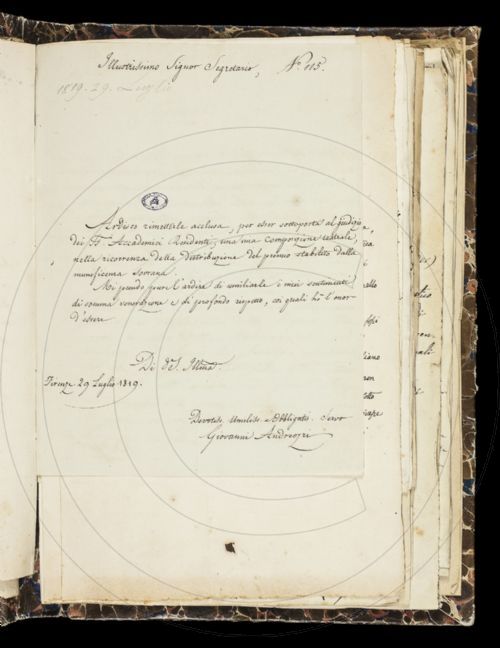 Illustrissimo Signor Segretario, N.º 115.
1819. 29. Luglio
Ardisco rimetterle acclusa, per esser sottoposta al giudizio
dei SS. Accademici Residenti, una mia Composizione teatrale,
nella ricorrenza della distribuzione del premio stabilito dalla
munificenza Sovrana.
Mi prendo pure l'ardire di umiliarle i miei sentimenti
di somma venerazione e di profondo rispetto, coi quali ho l'onor
d'essere
Di V. S. Illma
Firenze 29 Luglio 1819.
Devotiss. Umiliss. Obbligatis. Servo
Giovanni Andreozzi